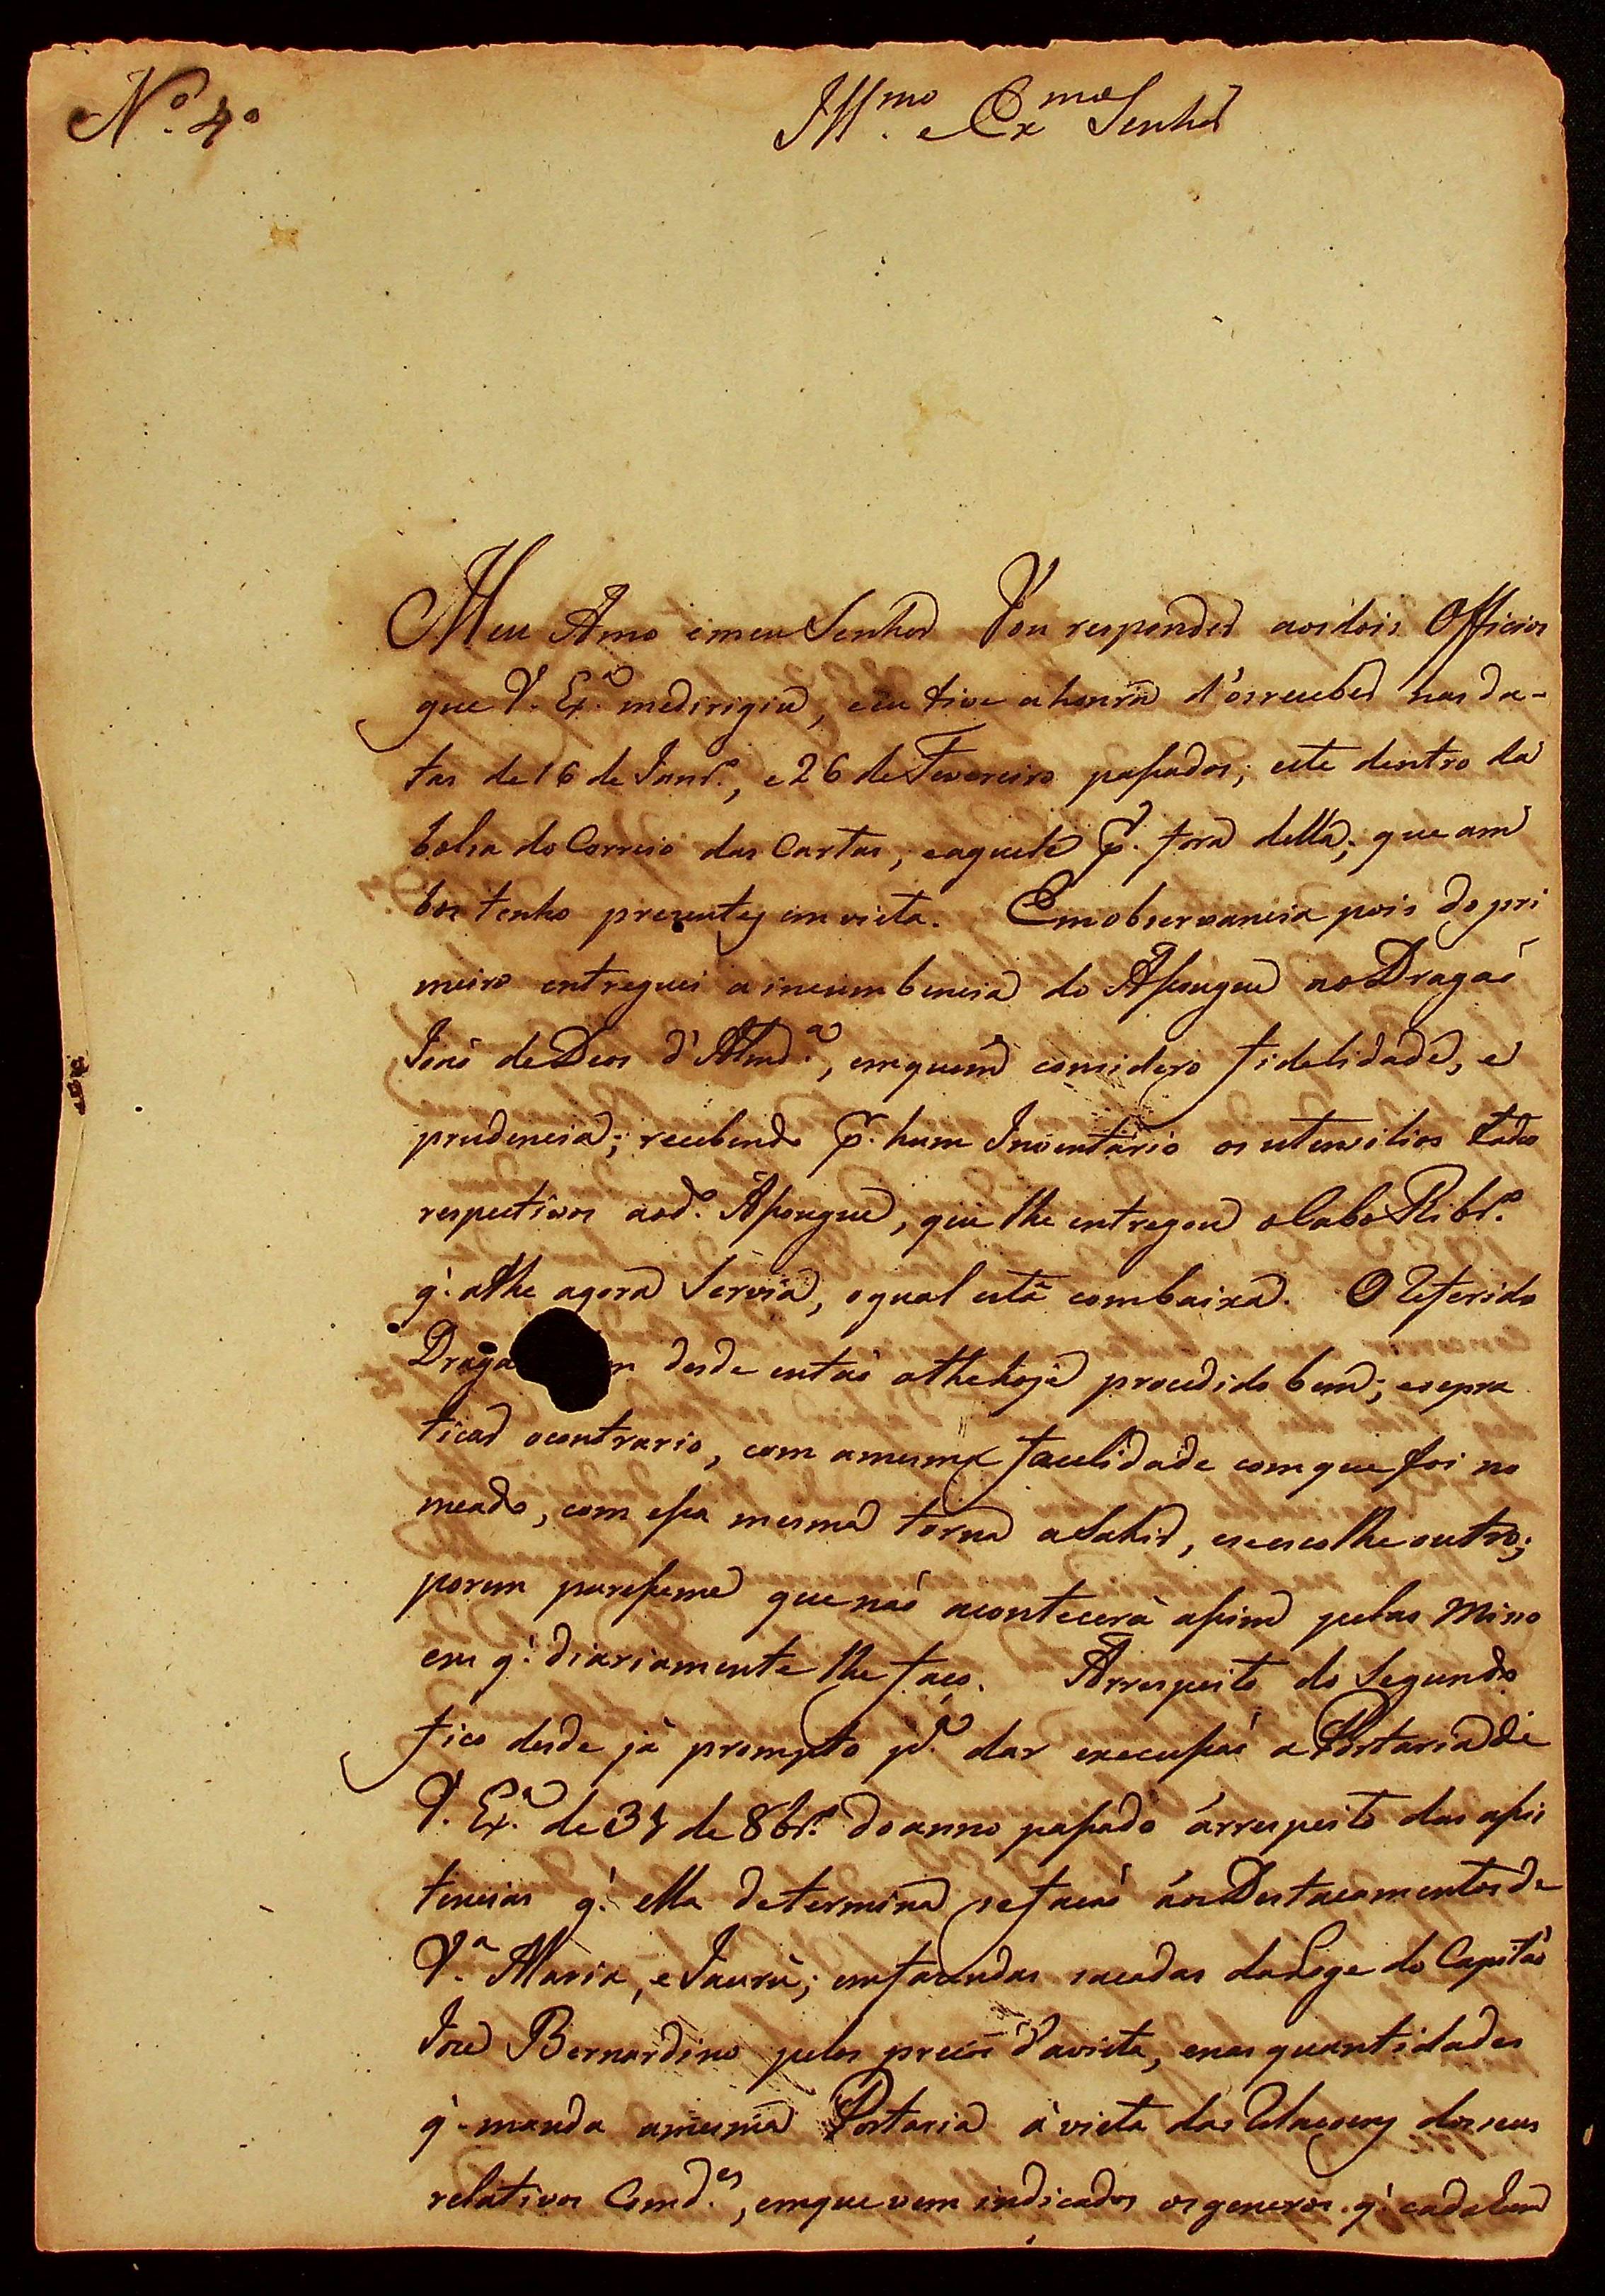 N.º 4º
Ill.mo e Exmo Senhor
Meu Amo e meu Senhor Vou responder aos dois Officios
que V. Ex.ª medirigiu, e eu tive a honra d'os receber nas da-
tas de 16 de Janr.º, e 26 de Fevereiro passados; este dentro da
bolsa do Correio das Cartas, e aquele p.r fora della; que am
bos tenho prezentes em vista. Em observancia pois do pri
meiro entreguei a incumbencia do Assougue ao Dragaõ
Joaõ de Deos d'Almd.ª, em quem considero fidelidade, e
prudencia; recebendo p.r hum Inventario os utensilios todos
respectivos ao d.º Assougue, que lhe entregou o Cabo Ribr.º
q.' athe agora Servia, o qual está com baixa. O referido
Draga m desde entaõ athe hoje procedido bem; e se pra
ticar o contrario, com a mesma facelidade com que foi no
meado, com essa mesma torna a Sahir, e se escolhe outro;
porem paresseme que naõ acontecerá assim pelas
em q.' diariamente lhe faço. Arrespeito do Segundo
fico desde já prompto p.ª dar execussaõ a Portaria de
V. Ex.ª de 31 de 8br.º do anno passado árrespeito das assis
tencias q.' ella determina se facaõ áos Destacamentos de
V.ª Maria, e Jaurú; em fazendas sacadas da Loge do Capitaõ
Joze Bernardino pelos precos d'avista, e nas quantidades
q.' manda a mesma Portaria á vista das Relacoens dos seus
relativos Comd.es, em que vem indicados os generos q.' cada hum